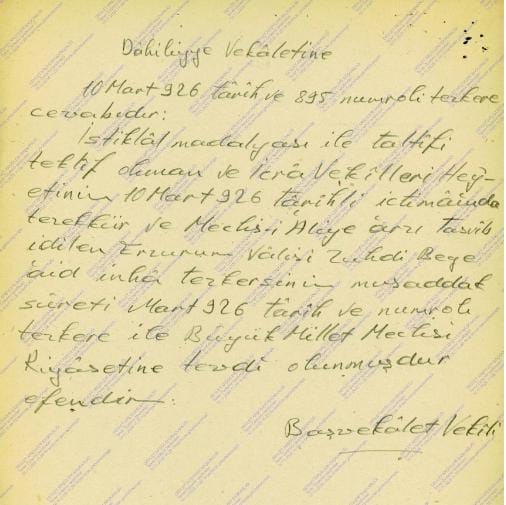 Dâhiliyye Vekâletine
10 Mart 926 târih ve 895 numrolı tezkere
cevabıdır:
İstiklâl madalyası ile taltifi
teklif olunan ve İcrâ Vekilleri Hey-
etinin 10 Mart 926 târihli ictimâında
tezekkür ve Meclis-i Âliye arzı tasvîb
idilen Erzurum Vâlisi Zühdi Beye
âid inhâ tezkersinin musaddak
sûreti Mart 926 târih ve numrolı
tezkere ile Büyük Millet Meclisi
Riyâsetine tevdi olunmuşdur
efendim.
Başvekâlet Vekili